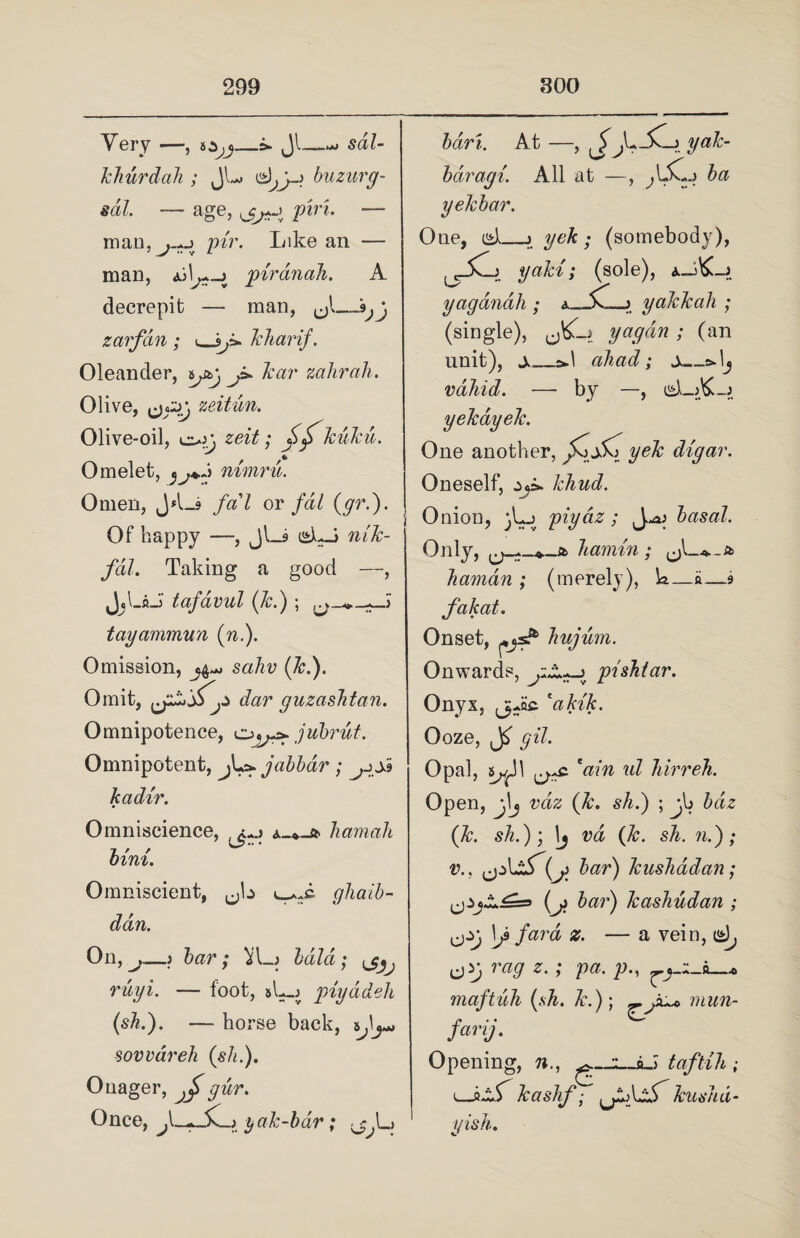 299
300
Very —, سال خورده sál-
khúrdah ; بزرگ سال buzurg-
sál. — age, پیری pírí. —
man, پیر pír. Like an —
man, پیرانه píránah. A
decrepit — man, زرفان
zarfán ; خرف kharif.
Oleander, خر زهره kar zahrah.
Olive, زیتون zeitún.
Olive-oil, زیت zeit ; کوکو kúkú.
Omelet, نیمرو nímrú.
Omen, فأل fa'l or fál (gr.).
Of happy —, نیك فال ník-
fál. Taking a good —,
تفاول tafávul (k.) ; تیمن
tayammun (n.).
Omission, سهو sahv (k.).
Omit, در گذشتن dar guzashtan.
Omnipotence, جبروت jubrút.
Omnipotent, جبار jabbár ; قدیر
kadír.
Omniscience, همه بینی hamah
bíní.
Omniscient, غیب دان ghaib-
dán.
On, بر bar ; بالا bálá ; روی
rúyi. — foot, پیاده piyádeh
(sh.). — horse back, سواره
sovváreh (sh.).
Onager, گور gúr.
Once, یکبار yak-bár ; باری
bárí. At —, یکبارگی yak-
báragí. All at —, بیکبار ba
yekbar.
One, یك yek ; (somebody),
یکی yakí ; (sole), یگانه
yagánáh ; یکه yakkah ;
(single), یگان yagán ; (an
unit), احد ahad ; واحد
váhid. — by —, یکایك
yekáyek.
One another, یکدیگر yek dígar.
Oneself, خود khud.
Onion, پیاز piyáz ; بصل basal.
Only, همین hamín ; همان
hamán ; (merely), فقط
fakat.
Onset, هجوم hujúm.
Onwards, پیشتر píshtar.
Onyx, عقیق 'akík.
Ooze, گل gil.
Opal, عین الهره 'ain ul hirreh.
Open, واز váz (k. sh.) ; باز báz
(k. sh.) ; وا vá (k. sh. n.) ;
v., گشادن (بر bar) kushádan ;
کشودن (بر bar) kashúdan ;
فرا زدن fará z. — a vein, رگ
زدن rag z. ; pa. p., مفتوح
maftúh (sh. k.) ; منفرج mun-
farij.
Opening, n., تفتیح taftíh ;
کشف kashf ; کشایش kushá-
yish.